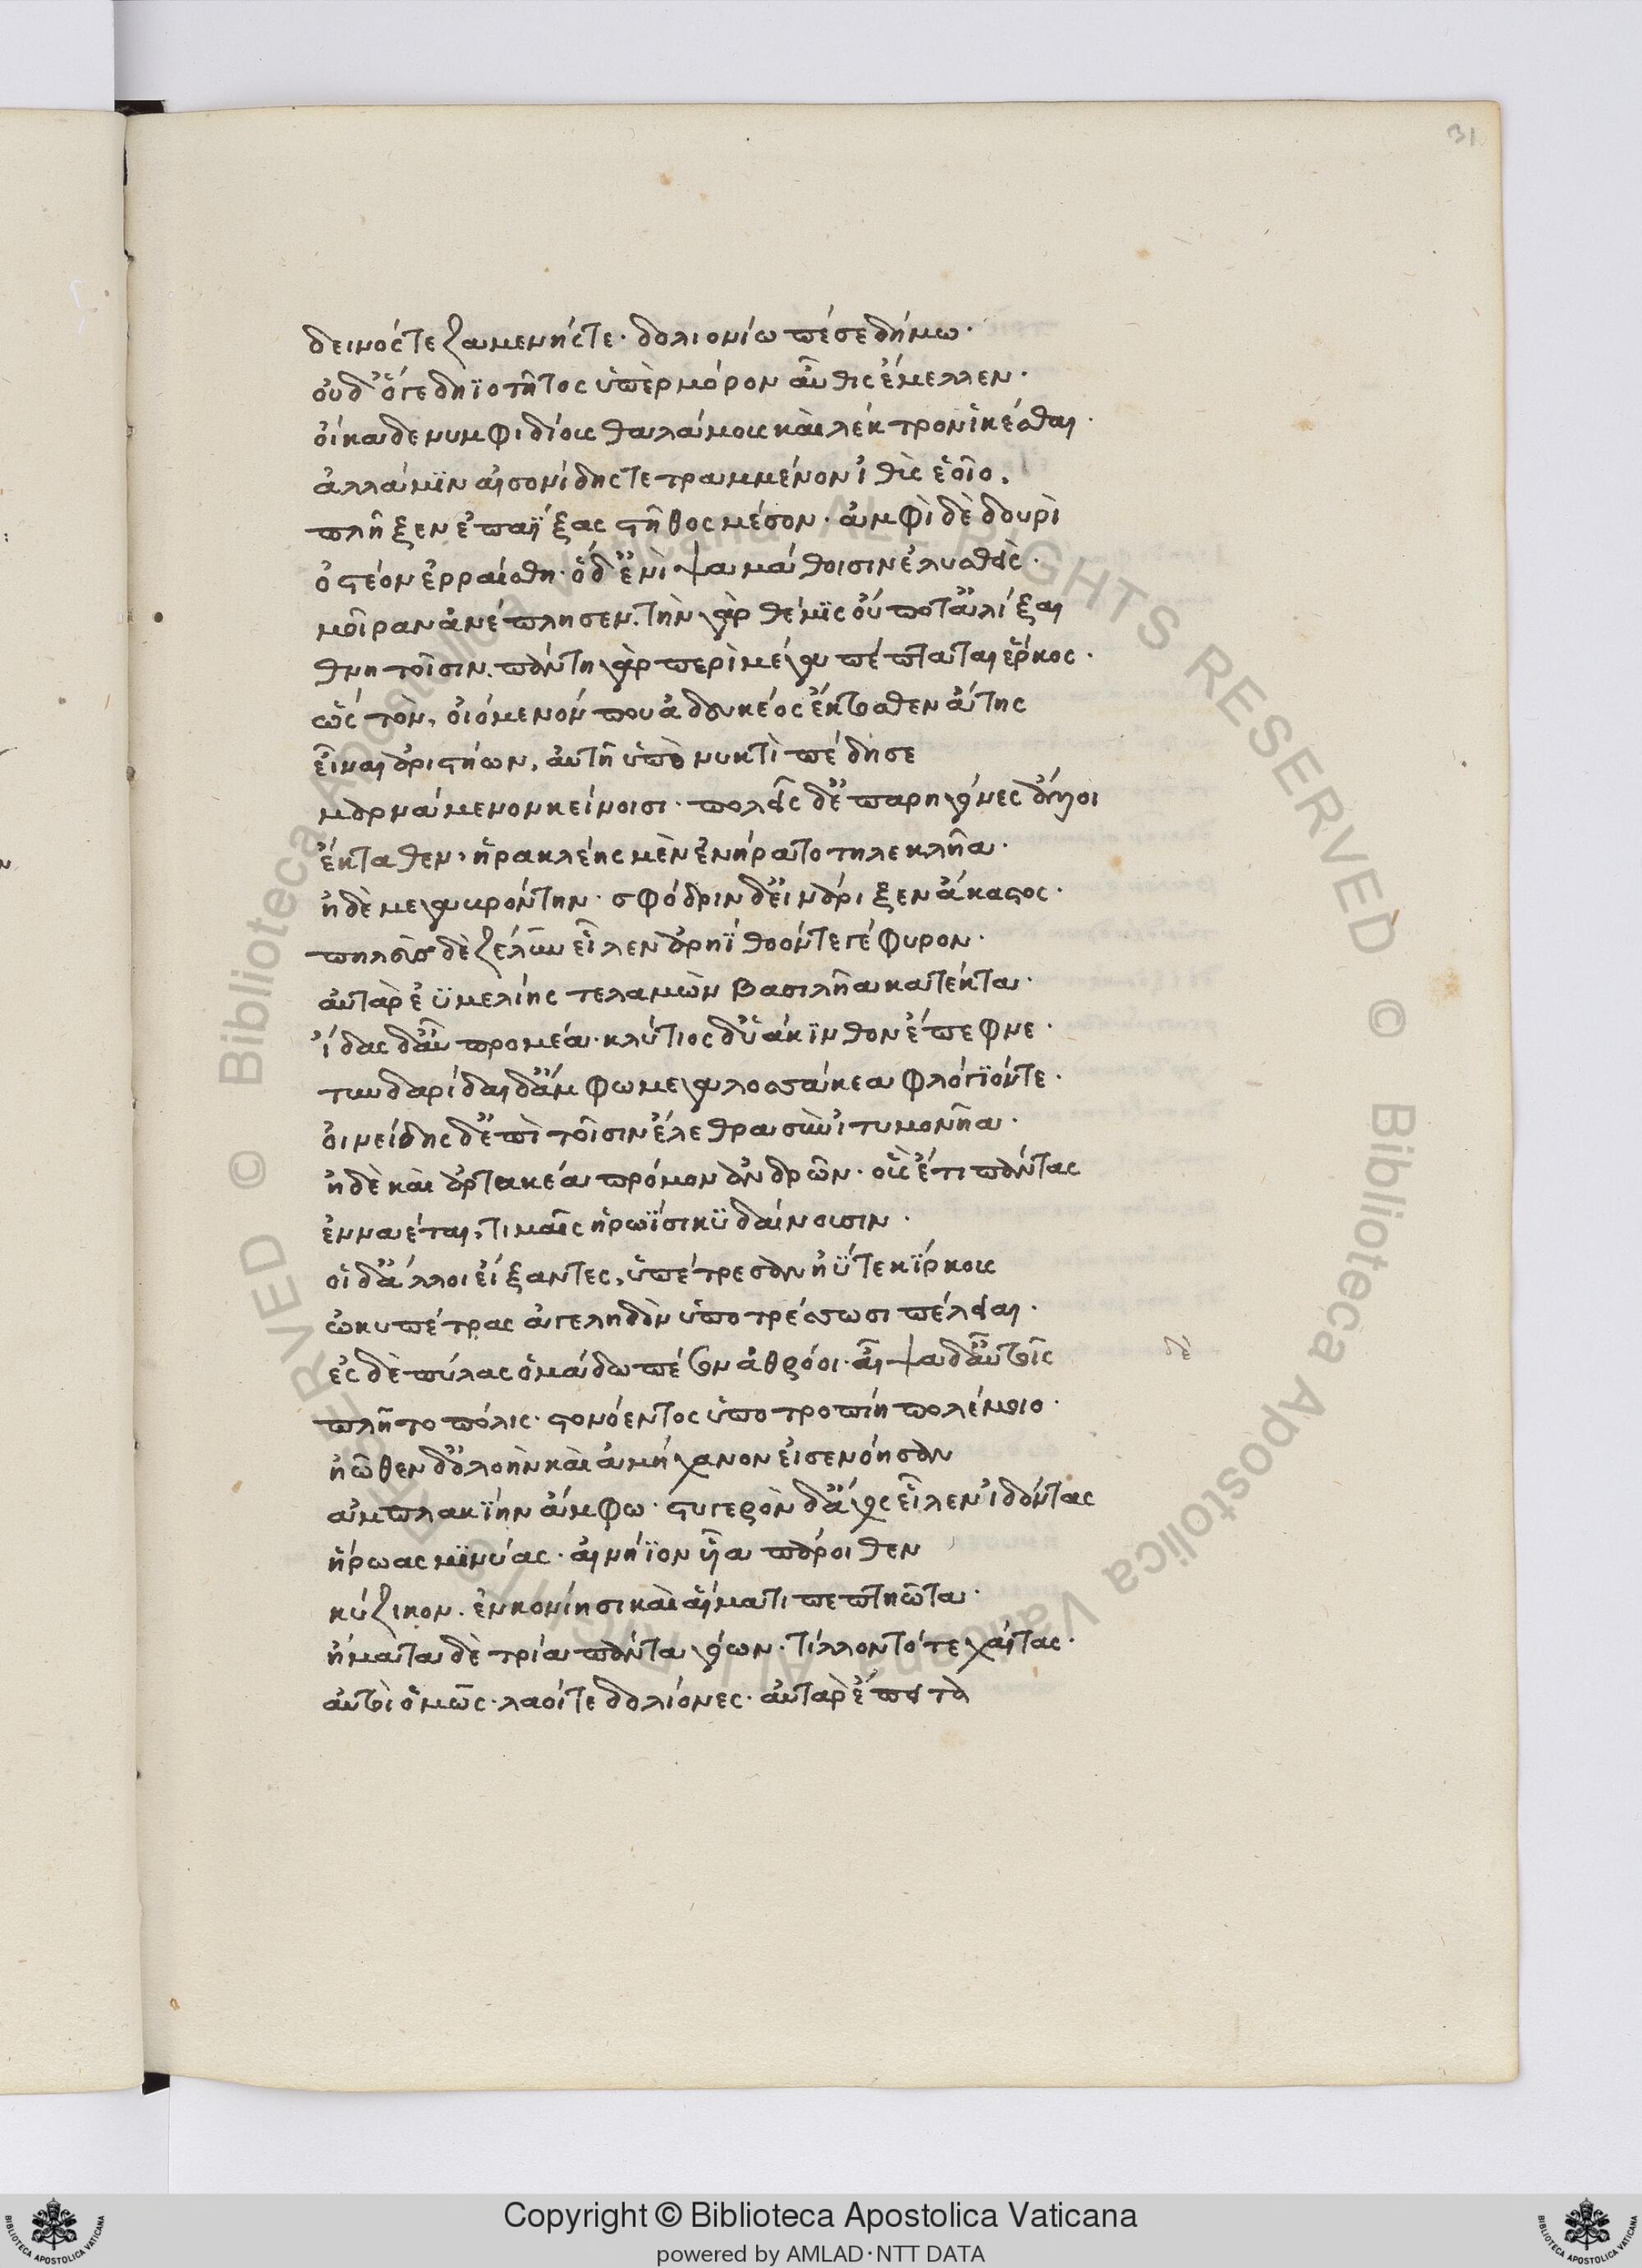 31
δεινός τε ζαμενής τε· δολιονίω πέσε δήμω·
οὐδ' ὅγε δηϊοτῆτος ὑπὲρ μόρον αὖθις ἔμελλεν·
οἴκαδε νυμφιδίους θαλάμους καὶ λέκτρον ἱκέσθαι·
ἀλλά μϊν αἰσονίδης τετραμμένον ἰθὺς ἑοῖο,
πλῆξεν ἐπαΐξας στῆθος μέσον· ἀμφὶ δὲ δουρὶ
ὀστέον ἐρραίσθη· ὁ δ' ἐνὶ ψαμάθοισιν ἐλυσθεὶς·
μοῖραν ἀνέπλησεν. τὴν γὰρ θέμϊς οὔποτ' ἀλύξαι
θνητοῖσιν. πάντη γὰρ περὶ μέγα πέπταται ἕρκος·
ὣς τὸν, οἰόμενόν που ἀδευκέος ἔκτοθεν ἄτης
εἶναι ἀριστήων, αὐτῆ ὑπὸ νυκτὶ πέδησε
μαρνάμενον κείνοισι· πολεῖς δ' ἐπαρηγόνες ἄλλοι
ἔκταθεν, ἡρακλέης μὲν ἐνήρατο τηλεκλῆα·
ἠδὲ μεγαβρόντην· σφόδριν δ' ἐνάριξεν ἄκαστος·
πηλεὺς δὲ ζέλυν εἷλεν ἀρηΐθοόν τε γέφυρον·
αὐτὰρ ἐϋμελίης τελαμὼν βασιλῆα κατέκτα·
ἴδας δ' αὖ προμέα· κλύτιος δ' ὑάκϊνθον ἔπεφνε·
τυνδαρίδαι δ' ἄμφω μεγαλοσσάκεα φλογϊόν τε·
οἰνείδης δ' ἐπὶ τοῖσιν ἕλε θρασὺν ἰτυμονῆα·
ἠδὲ καὶ ἀρτακέα πρόμον ἀνδρῶν· οὓς ἔτι πάντας
ἐνναέται, τιμαῖς ἡρωΐσι κϋδαίνουσιν·
οἱ δ' ἄλλοι εἴξαντες, ὑπέτρεσαν ἠΰτε κΐρκους
ὠκυπέτρας ἀγεληδὸν ὑποτρέσσωσι πέλειαι·
ἐς δὲ πύλας ὁμάδω πέσον ἀθρόοι· αἶψα δ' αὐτῆς
πλῆτο πόλις· στονόεντος ὑποτροπίη πολέμοιο·
ἠῶθεν δ' ὀλοὴν καὶ ἀμήχανον εἰσενόησαν
ἀμπλακΐην ἄμφω· στυγερὸν δ' ἄχος εἷλεν ἰδόντας
ἥρωας μϊνύας· αἰνήϊον ἧα πάροιθεν
κύζικον. ἐν κονίησι καὶ αἵματι πεπτηῶτα·
ἤματα δὲ τρία πάντα γόων· τίλλοντό τε χαίτας·
αὐτοὶ ὁμῶς· λαοί τε δολίονες· αὐτὰρ ἔπειτα
Copyright © Biblioteca Apostolica Vaticana
powered by AMLAD·NTT DATA